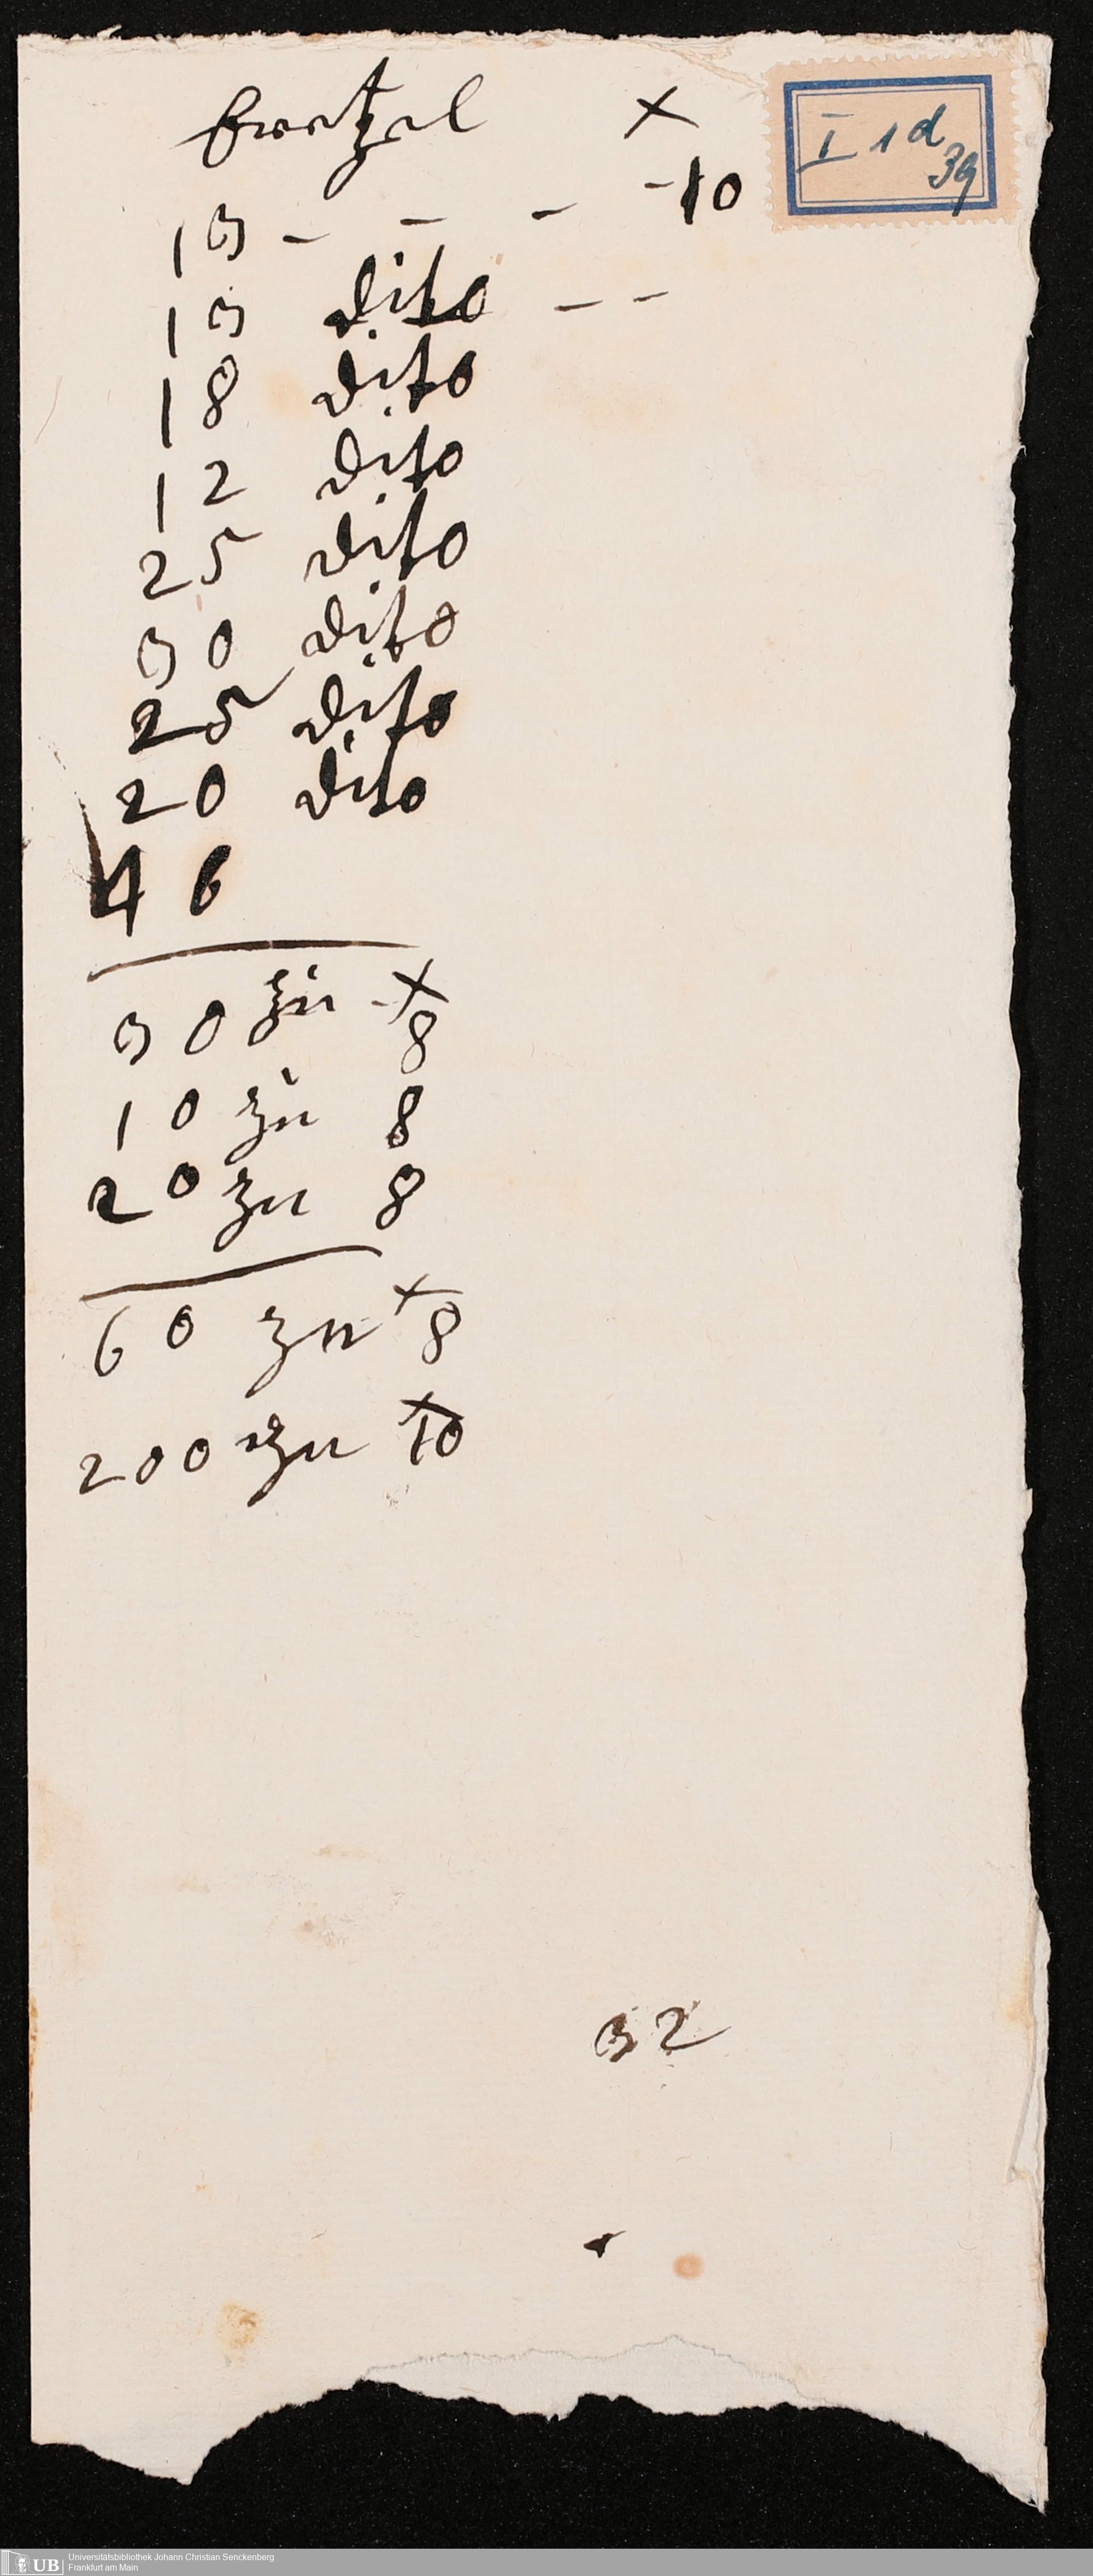 bretzel x
I 1 d
39
13 – – – – 10
13 dito – –
18 dito
12 dito
25 dito
30 dito
25 dito
20 dito
46
30 zu x 8
10 zu 8
20 zu 8
60 zu x 8
200 zu x 10
32
UB Universitätsbibliothek Johann Christian Senckenberg
Frankfurt am Main